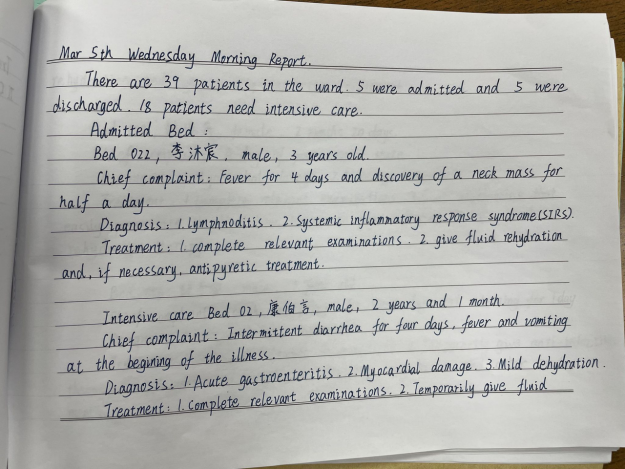 Mar 5th Wednesday Morning Report.
There are 39 patients in the ward. 5 were admitted and 5 were
discharged. 18 patients need intensive care.
Admitted Bed :
Bed 022, 李沐宸, male, 3 years old.
Chief complaint: Fever for 4 days and discovery of a neck mass for
half a day.
Diagnosis: 1. Lymphnoditis. 2. Systemic inflammatory response syndrome (SIRS).
Treatment: 1. complete relevant examinations. 2. give fluid rehydration
and, if necessary, antipyretic treatment.
Intensive care Bed 02, 康伯言, male, 2 years and 1 month.
Chief complaint: Intermittent diarrhea for four days, fever and vomiting
at the begining of the illness.
Diagnosis: 1. Acute gastroenteritis. 2. Myocardial damage. 3. Mild dehydration.
Treatment: 1. Complete relevant examinations. 2. Temporarily give fluid